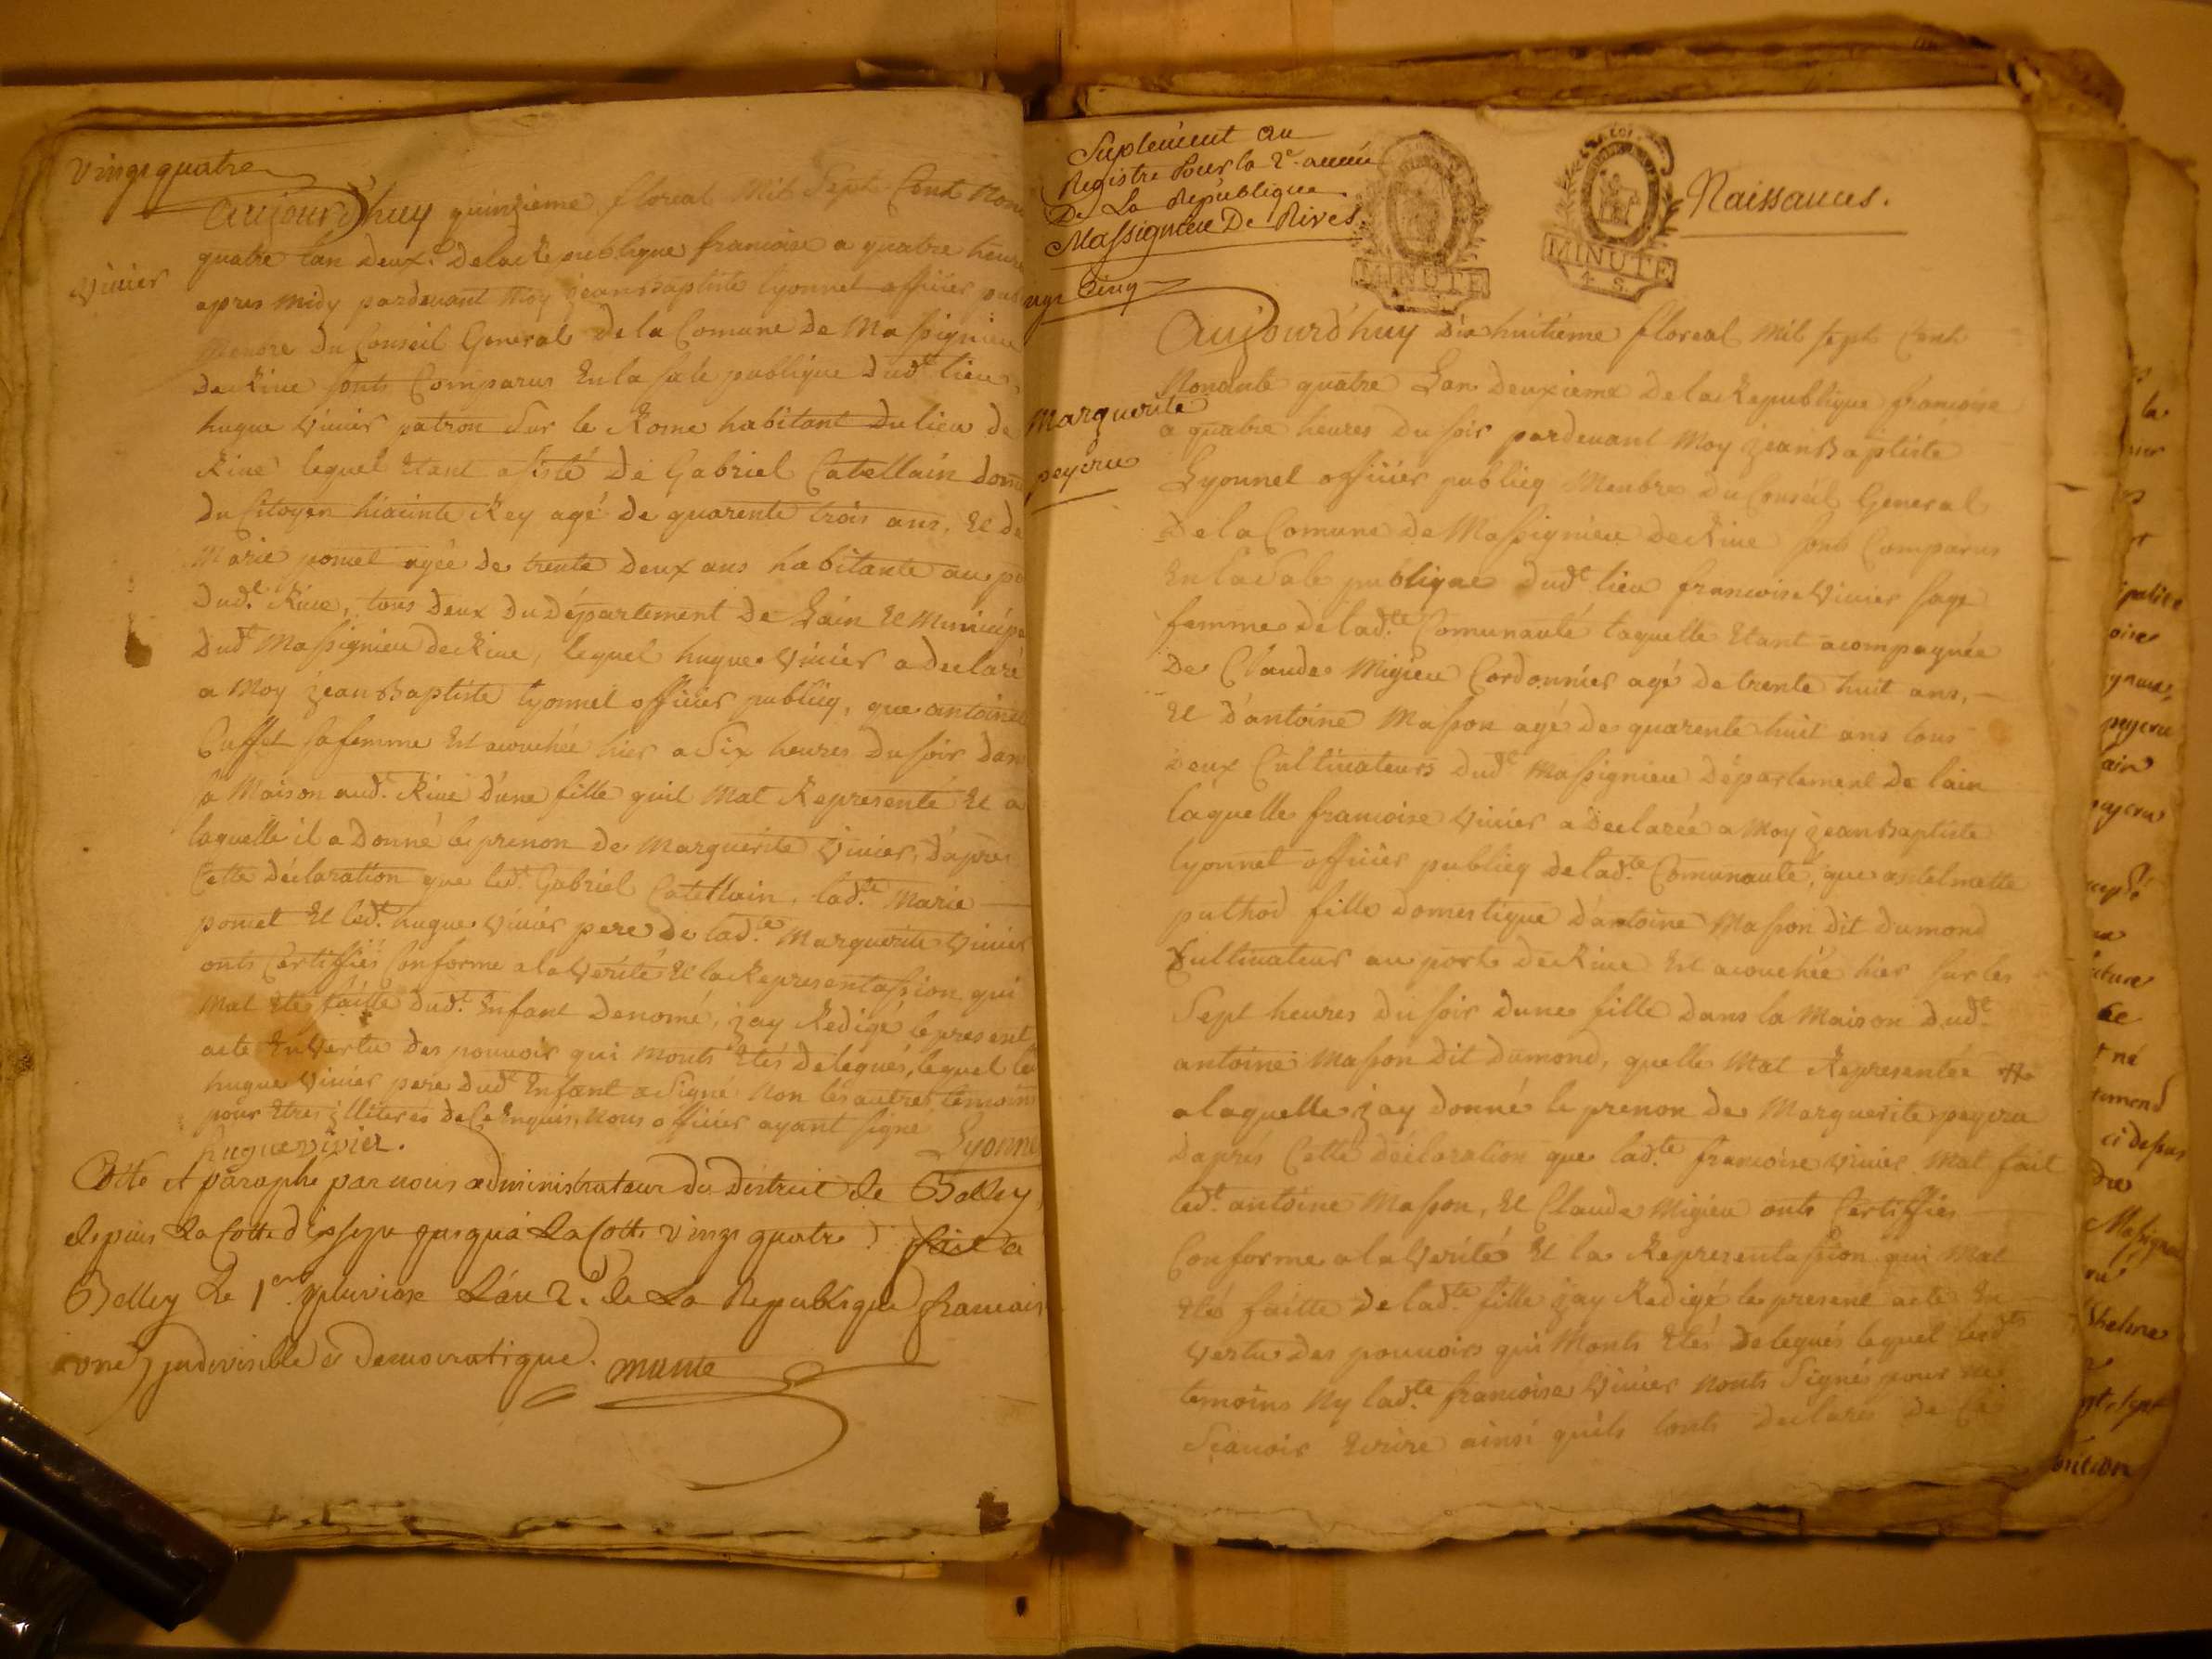 vingt quatre
Aujourd'huy quinzieme floreal Mil Sept Cent Non
quatre Lan Deux.e De la Republique francoise a quatre heure
vivier
apres midy pardevant Moy Jean Baptiste Lyonnet officier pub
Menbre Du Conseil General De la Comune De Massignieu
De Rive sonts Comparus En la sale publique Dud.t lieu
hugue vivier patron Sur le Rone habitant Du lieu De
Rive lequel Etant asisté De Gabriel Catellain Dom
Du Citoyen hiacinte Rey agé De quarente trois ans, Et De
Marie pomet agée De trente Deux ans habitante au po
Dud.t Rive, tous Deux Du Département De Lain Et Municipa
Dud.t Massignieu De Rive, lequel hugue vivier a Declaré
a Moy Jean Baptiste Lyonnet officier publicq, que antoinette
Cuffet sa femme Est acouchée hier a Six heures Du soir Dans
sa Maison aud.t Rive D'une fille quil Mat Representé Et a
laquelle il a Donné le prenon De Marguerite vivier, D'apres
Cette déclaration que led.t Gabriel Catellain, lad.te Marie
pomet Et led.t hugue vivier pere De lad.te Marguerite vivier
onts Certiffiés Conforme a la verité Et la Representassion qui
Mat Eté faitte Dud.t Enfant Denomé, Jay Redigé le present
acte En Vertu Des pouvoir qui Monts Etés Delegués, lequel led
hugue vivier pere Dud.t Enfant a Signé Non les autres temoins
pour Etres illiterés De Ce Enquis, Nous officier ayant signé
hugue vivier. Lyonnet
Cotté et paraphé par nous administrateur du District de Belley,
depuis La Cotte dix sept jusqua La Cotte vingt quatre. fait a
Belley Le 1er pluviose L'an 2e de La Republique francaise
une, indivisible et Democratique.
Suplément au
Registre Pour la 2e. année
De La République
Massignieu De Rives.
MINUTE
4 S.
MINUTE
4 S.
Naissances.
vingt Cinq
Aujourd'huy Dix huitiéme floreal Mil sept Cent
Nonante quatre Lan Deuxieme De la Republique francoise
Marguerite
peycru
a quatre heures Du soir pardevant Moy Jean Baptiste
Lyonnet officier publicq Menbre Du Conseil General
De la Comune De Massignieu De Rive sont Comparus
En la Sale publique Dud.t lieu francoise vivier sage
femme De lad.te Comunauté laquelle Etant acompagnée
De Claude Migieu Cordonnier agé De trente huit ans,
Et D'antoine Masson agé De quarente huit ans tous
Deux Cultivateurs Dud.t Massignieu Département De lain
laquelle francoise vivier a Declarée a Moy Jean Baptiste
Lyonnet officier publicq De lad.te Comunauté, que antelmette
puthod fille Domestique D'antoine Masson Dit Dumond
Cultivateur au port De Rive Est acouchée hier sur les
Sept heures Du soir Dune fille Dans la Maison Dud.t
antoine Masson Dit Dumond, quelle Mat Representée
a laquelle Jay Donné le prenon De Marguerite peycru
Daprés Cette Déclaration que lad.te francoise vivier Mat fait
led.t antoine Masson, Et Claude Migieu onts Certiffiés
Conforme a la Verité Et la Representassion qui Mat
Eté faitte De lad.te fille Jay Redigé le present acte En
Vertu Des pouvoirs qui Monts Etés Delegués lequel lesd.ts
temoins Ny lad.te francoise vivier Nonts Signés pour ne
Scavoir Ecrire ainsi quils lonts Declarés De Ce